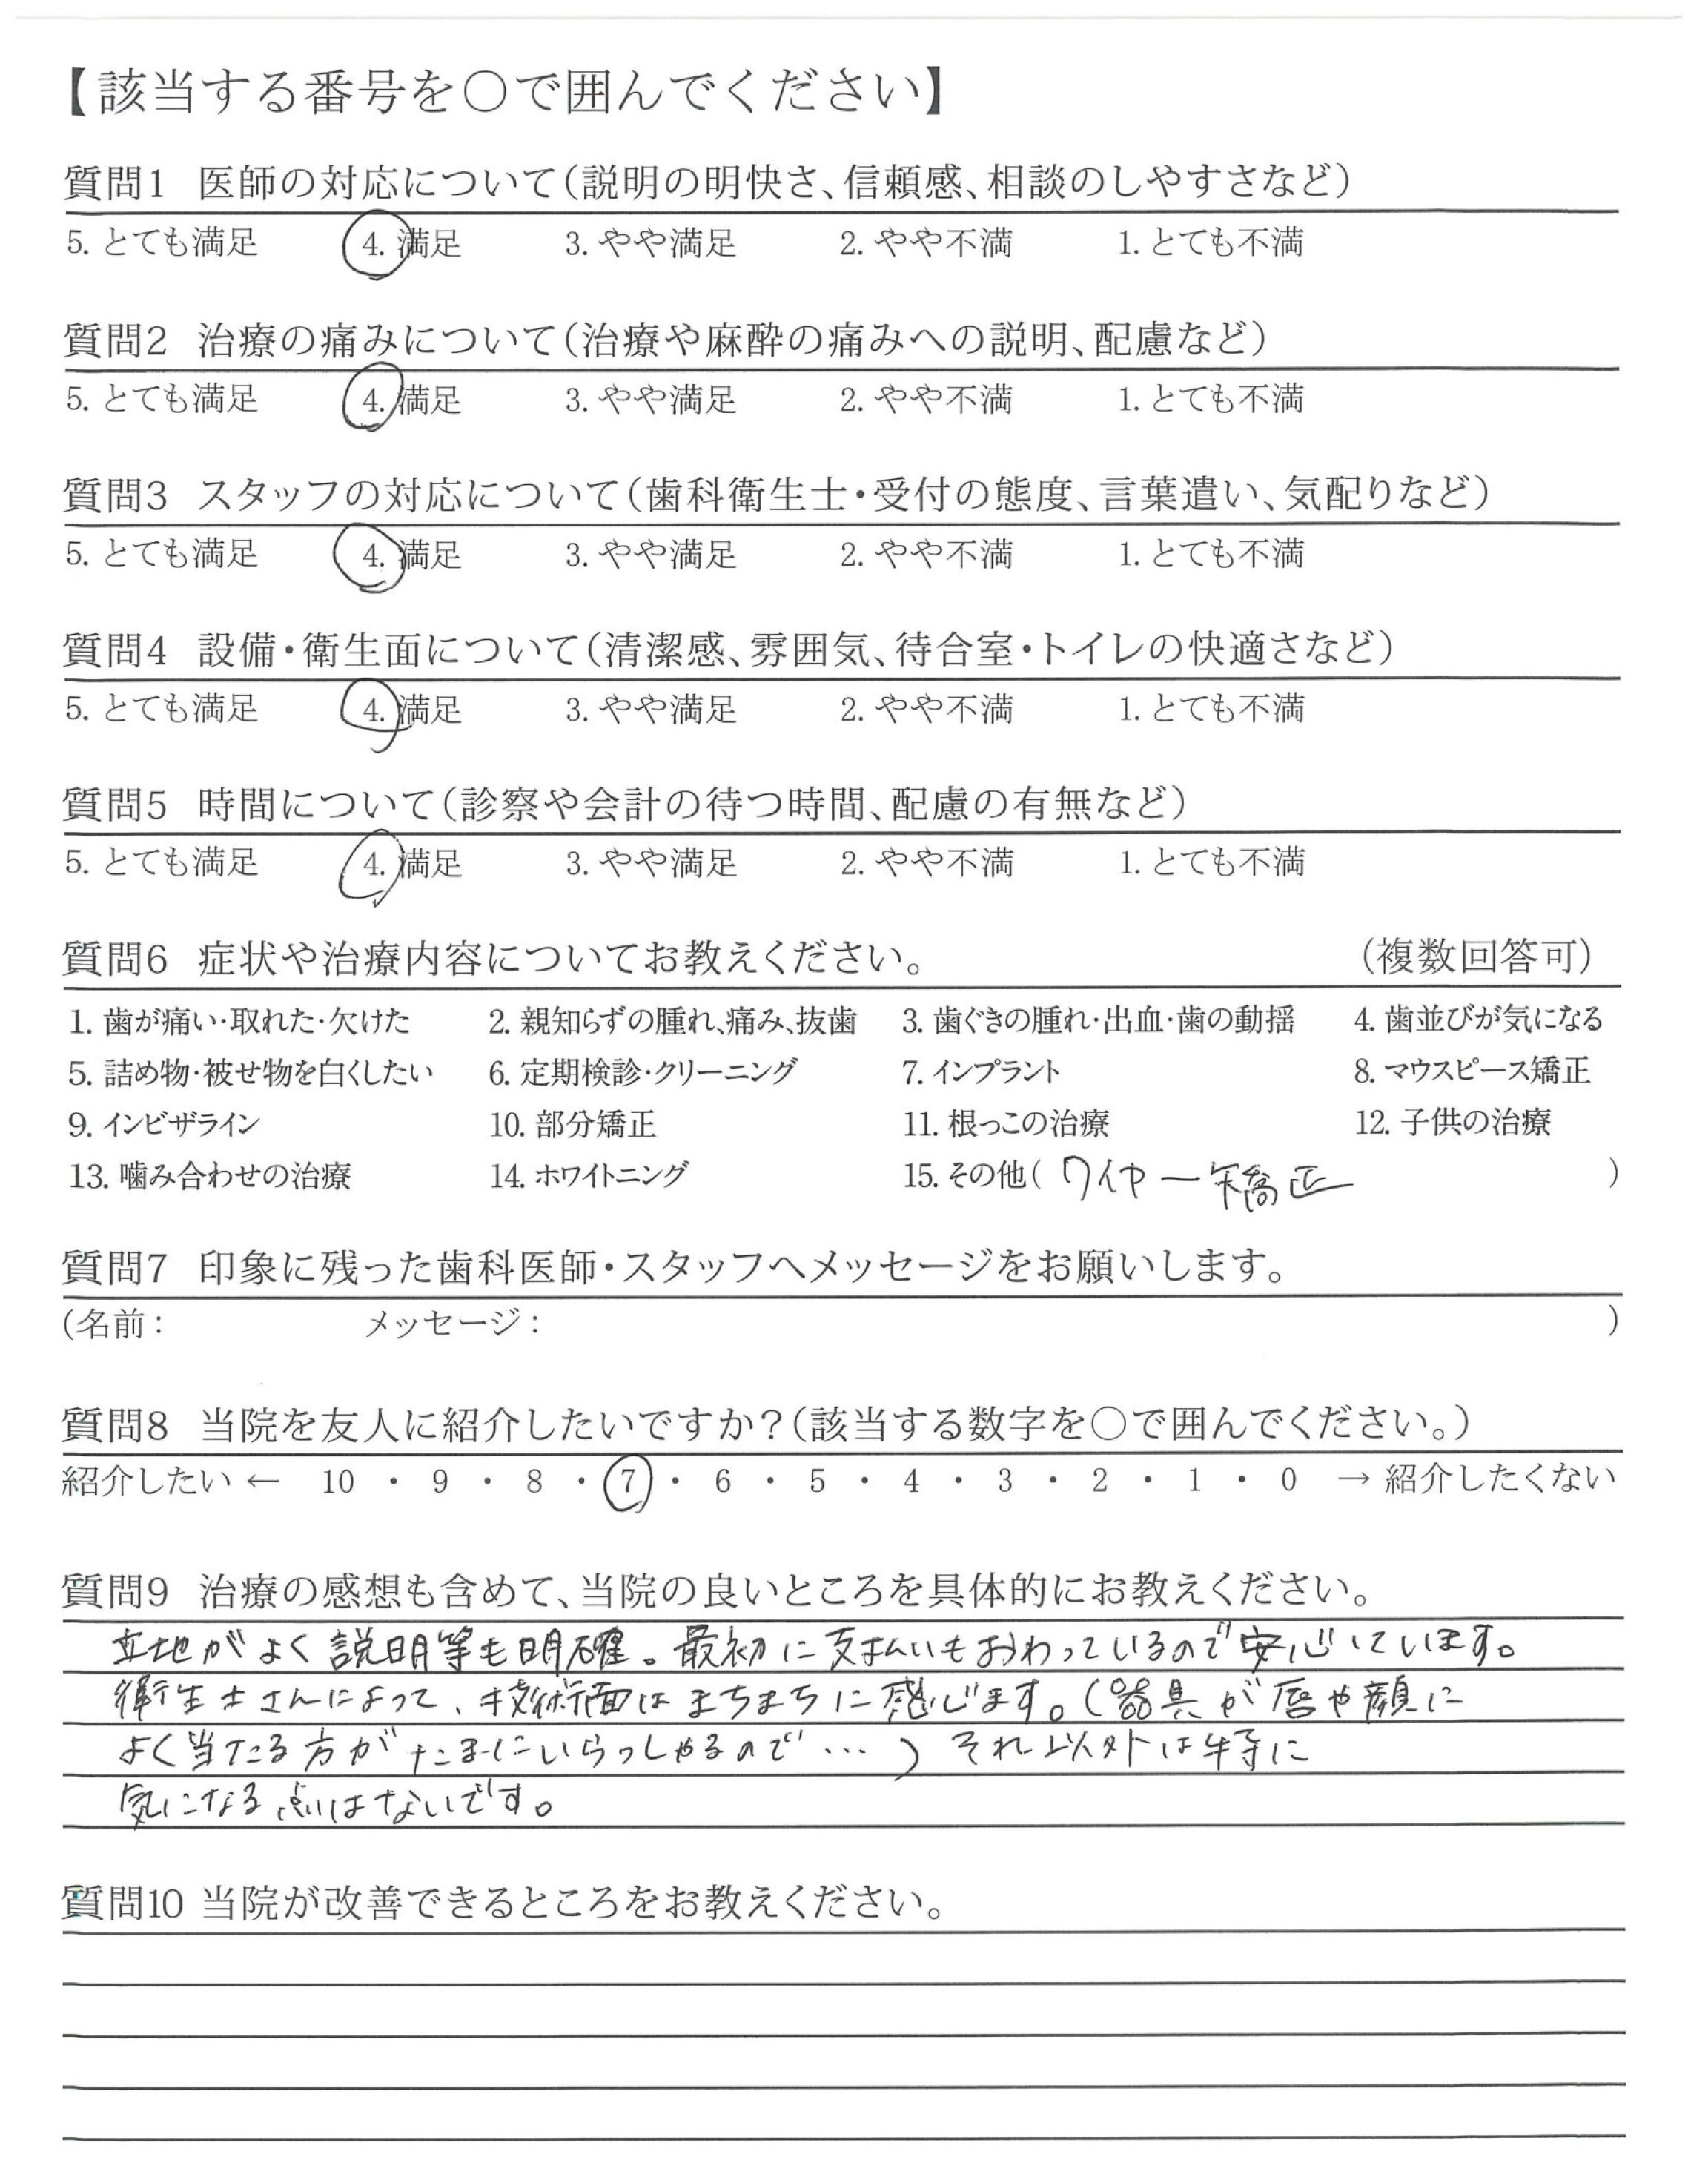 【該当する番号を〇で囲んでください】
質問1 医師の対応について(説明の明快さ、信頼感、相談のしやすさなど)
5. とても満足 4. 満足 3. やや満足 2. やや不満 1. とても不満
質問2 治療の痛みについて(治療や麻酔の痛みへの説明、配慮など)
5. とても満足 4. 満足 3. やや満足 2. やや不満 1. とても不満
質問3 スタッフの対応について(歯科衛生士・受付の態度、言葉遣い、気配りなど)
5. とても満足 4. 満足 3. やや満足 2. やや不満 1. とても不満
質問4 設備・衛生面について(清潔感、雰囲気、待合室・トイレの快適さなど)
5. とても満足 4. 満足 3. やや満足 2. やや不満 1. とても不満
質問5 時間について(診察や会計の待つ時間、配慮の有無など)
5. とても満足 4. 満足 3. やや満足 2. やや不満 1. とても不満
質問6 症状や治療内容についてお教えください。 (複数回答可)
1. 歯が痛い・取れた・欠けた 2. 親知らずの腫れ、痛み、抜歯 3. 歯ぐきの腫れ・出血・歯の動揺 4. 歯並びが気になる
5. 詰め物・被せ物を白くしたい 6. 定期検診・クリーニング 7. インプラント 8. マウスピース矯正
9. インビザライン 10. 部分矯正 11. 根っこの治療 12. 子供の治療
13. 噛み合わせの治療 14. ホワイトニング 15. その他( ワイヤー矯正 )
質問7 印象に残った歯科医師・スタッフへメッセージをお願いします。
(名前: メッセージ: )
質問8 当院を友人に紹介したいですか?(該当する数字を〇で囲んでください。)
紹介したい ← 10 ・ 9 ・ 8 ・ 7 ・ 6 ・ 5 ・ 4 ・ 3 ・ 2 ・ 1 ・ 0 → 紹介したくない
質問9 治療の感想も含めて、当院の良いところを具体的にお教えください。
立地がよく説明等も明確。最初に支払いもおわっているので安心しています。
衛生士さんによって、技術面はまちまちに感じます。(器具が唇や顔に
よく当たる方がたまにいらっしゃるので…) それ以外は特に
気になる点はないです。
質問10 当院が改善できるところをお教えください。